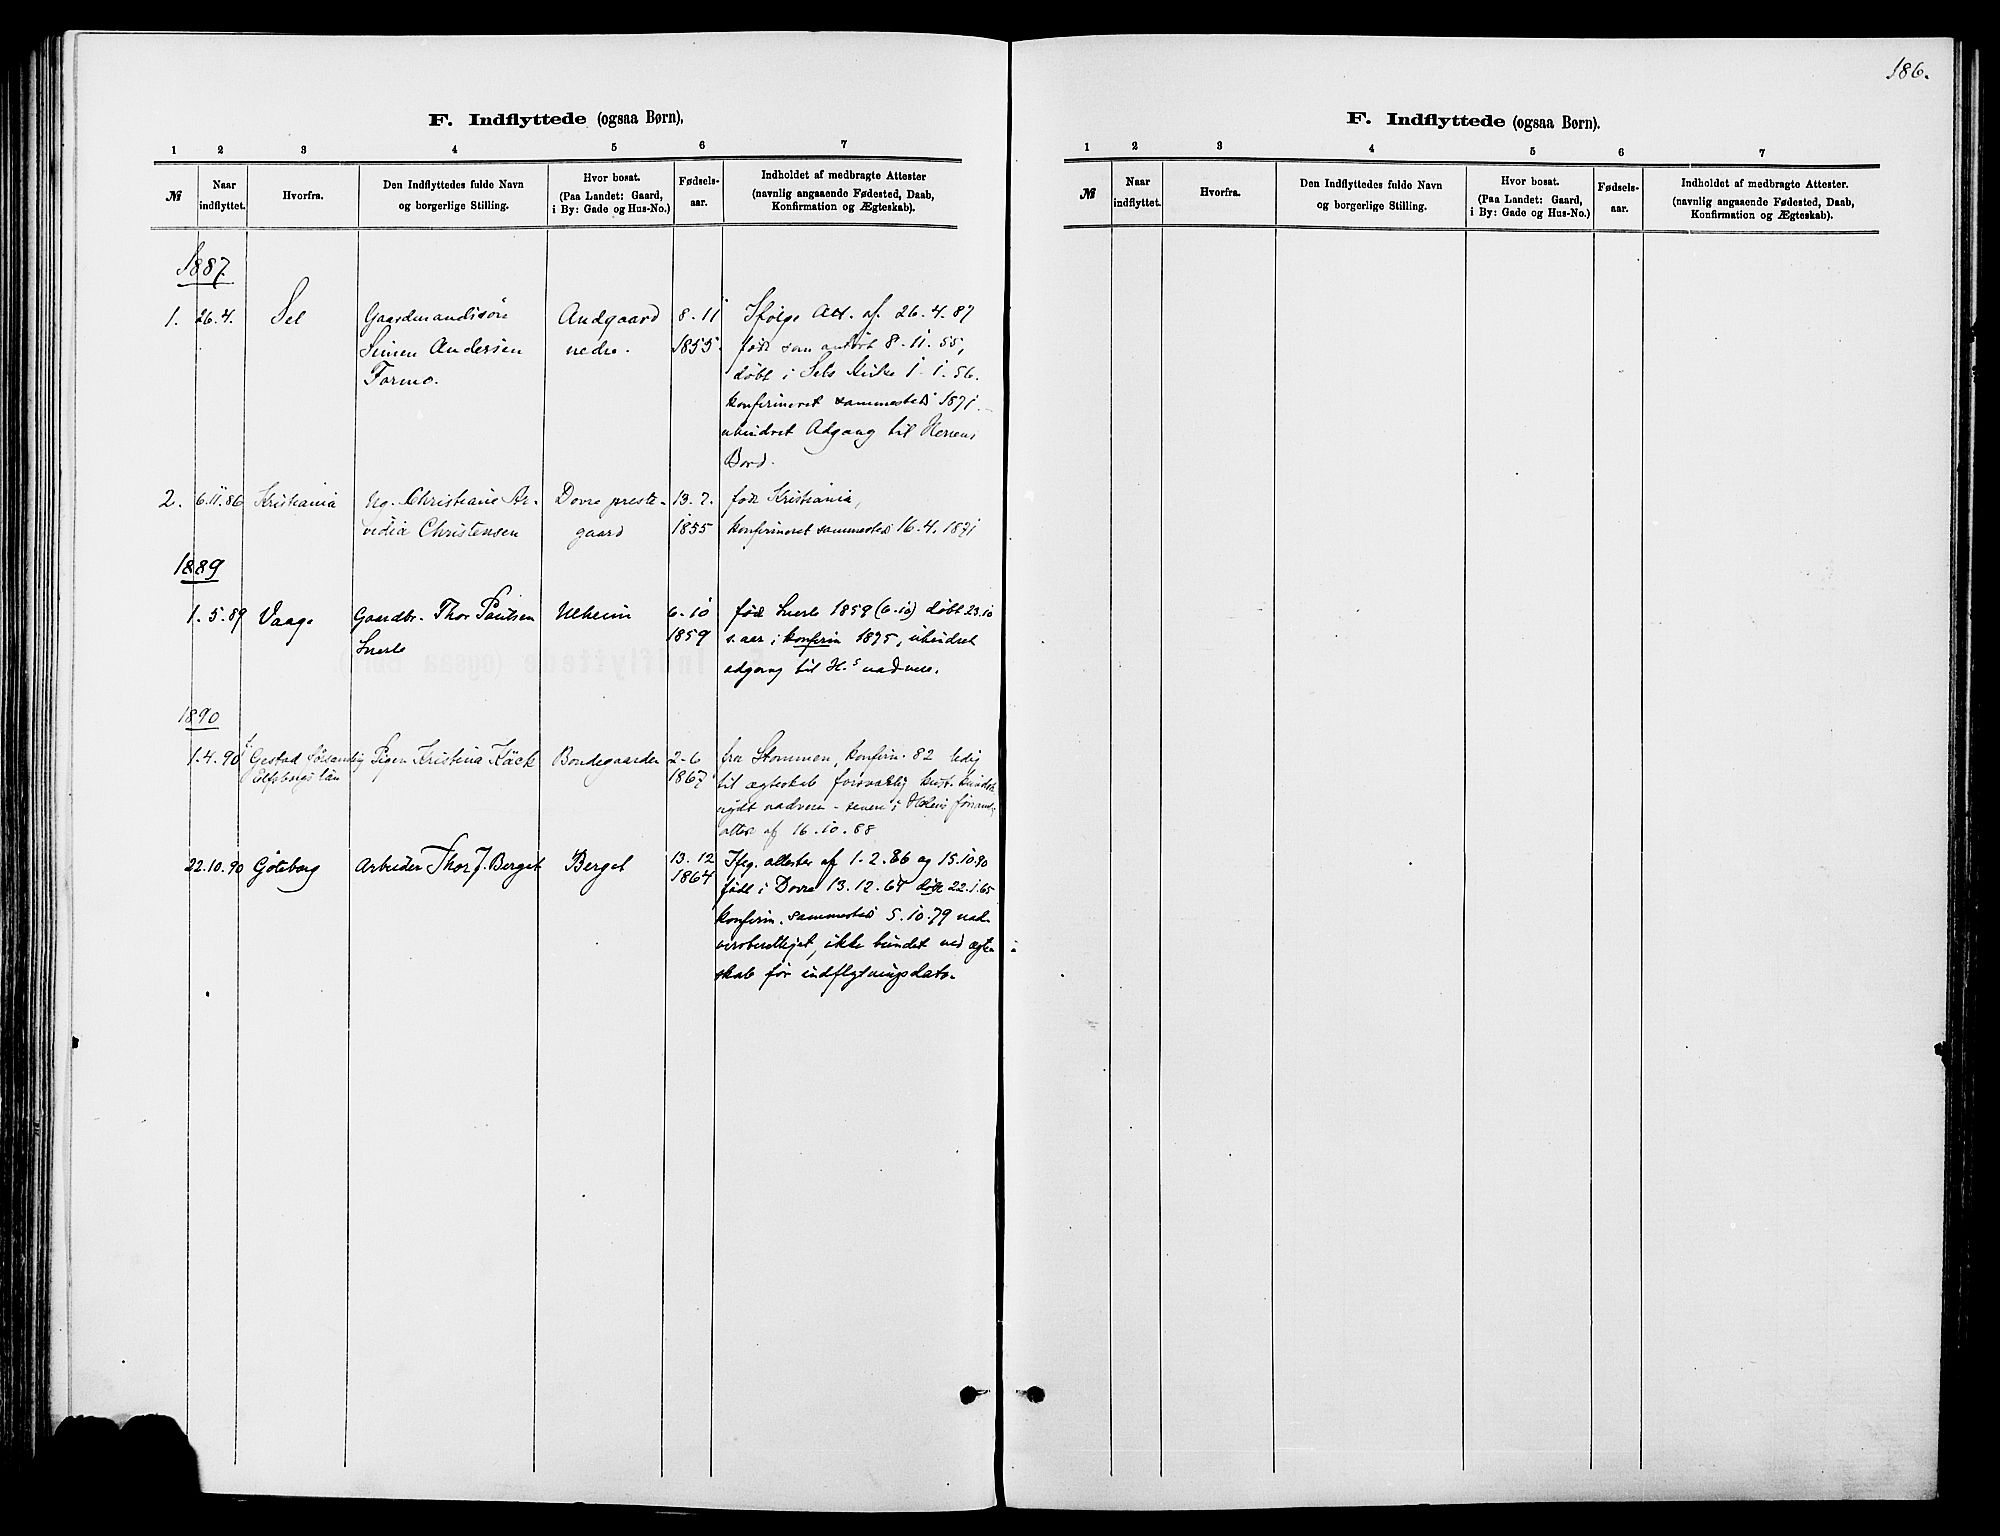 186.
F. Indflyttede (ogsaa Børn),
1 2 3 4 5 6 7
№
Naar indflyttet.
Hvorfra.
Den Indflyttedes fulde Navn
og borgerlige Stilling.
Hvor bosat.
(Paa Landet: Gaard,
i By: Gade og Hus-No.)
Fødsels-
aar.
Indholdet af medbragte Attester
(navnlig angaaende Fødested, Daab,
Konfirmation og Ægteskab).
1887.
1. 26.4. Sel Gaardmandssön Andgaard 8-11 Ifølge Att. af 26.4.87
Simen Andersen nedre. 1855. født som anført 8-11-55,
Formo. døbt i Sels Kirke 1-1-56.
konfirmeret sammesteds 1871
uhindret Adgang til Herrens
Bord.
2. 6.11.86 Kristiania Ug. Christiane Ar- Dovre preste- 13.7. født Kristiania,
vidia Christensen gaard 1855 konfirmeret sammesteds 16.4.1871
1889
1.5.89 Vaage Gaardbr. Thor Paulsen Ulheim 6-10 født Snerle 1859 (6-10) døbt 23.10
Snerle 1859 s. aar, konfirm 1875, uhindret
adgang til H.s nadvere.
1890
1.4.90 Gestad Pigen Kristina Käck Bondegaarden 2-6 fra Stommen, konfirm. 82 ledig
Elfsborgs län 1867 til ægteskab forsvarlig
nydt nadvere - senere i
attest af 16.10.88
22.10.90 Göteborg Arbeider Thor J. Berget Berget 13.12 Ifølg. attester af 1.2.86 og 15.10.90
1864 født i Dovre 13.12.64 døbt 22.1.65
konfirm. sammesteds 5.10.79 nad-
verberettiget, ikke bundet ved ægte-
skab før indflytningsdato.
F. Indflyttede (ogsaa Børn).
1 2 3 4 5 6 7
№
Naar indflyttet.
Hvorfra.
Den Indflyttedes fulde Navn
og borgerlige Stilling.
Hvor bosat.
(Paa Landet: Gaard,
i By: Gade og Hus-No.)
Fødsels-
aar.
Indholdet af medbragte Attester.
(navnlig angaaende Fødested, Daab,
Konfirmation og Ægteskab).